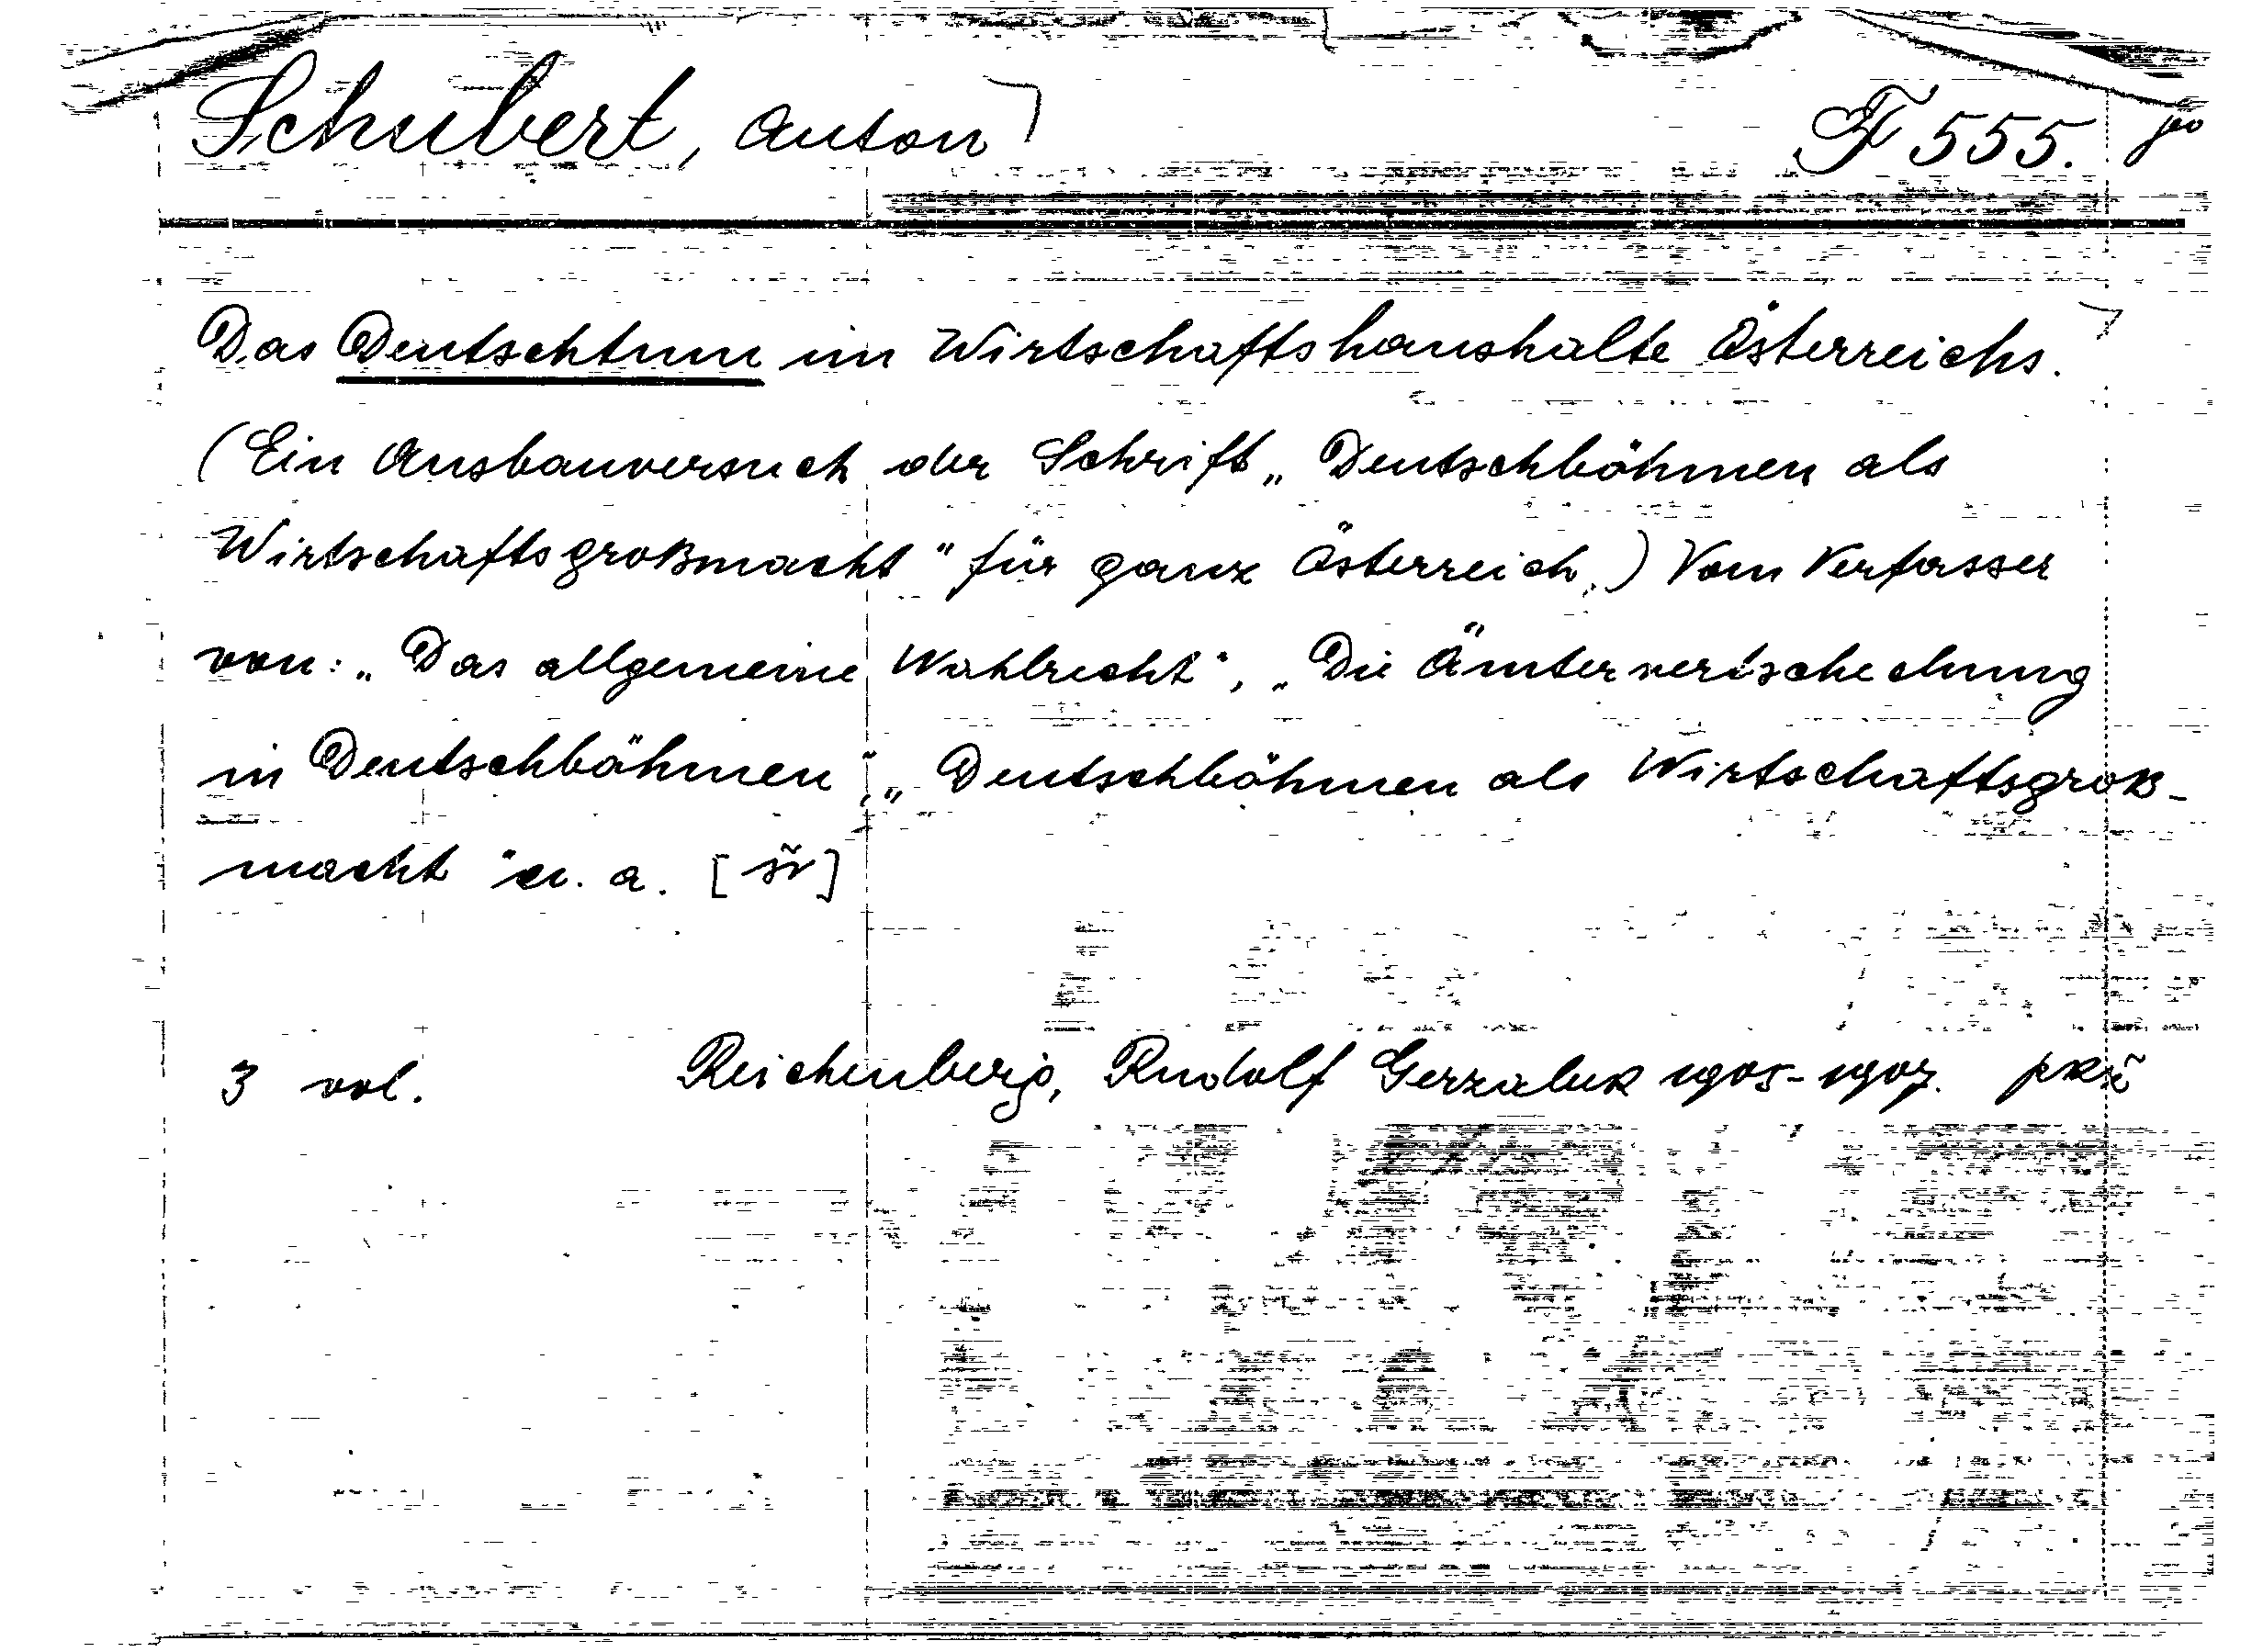 Schubert, Anton F 555.
Das Deutschtum im Wirtschaftshaushalte Österreichs.
(Ein Ausbauversuch der Schrift „Deutschböhmen als
Wirtschaftsgroßmacht" für ganz Österreich.) Vom Verfasser
von: „Das allgemeine Wahlrecht", „Die Ämtervertschechung
in Deutschböhmen", „Deutschböhmen als Wirtschaftsgroß-
macht" u. a. [šv]
3 vol. Reichenberg, Rudolf Gerzabek 1905-1907.